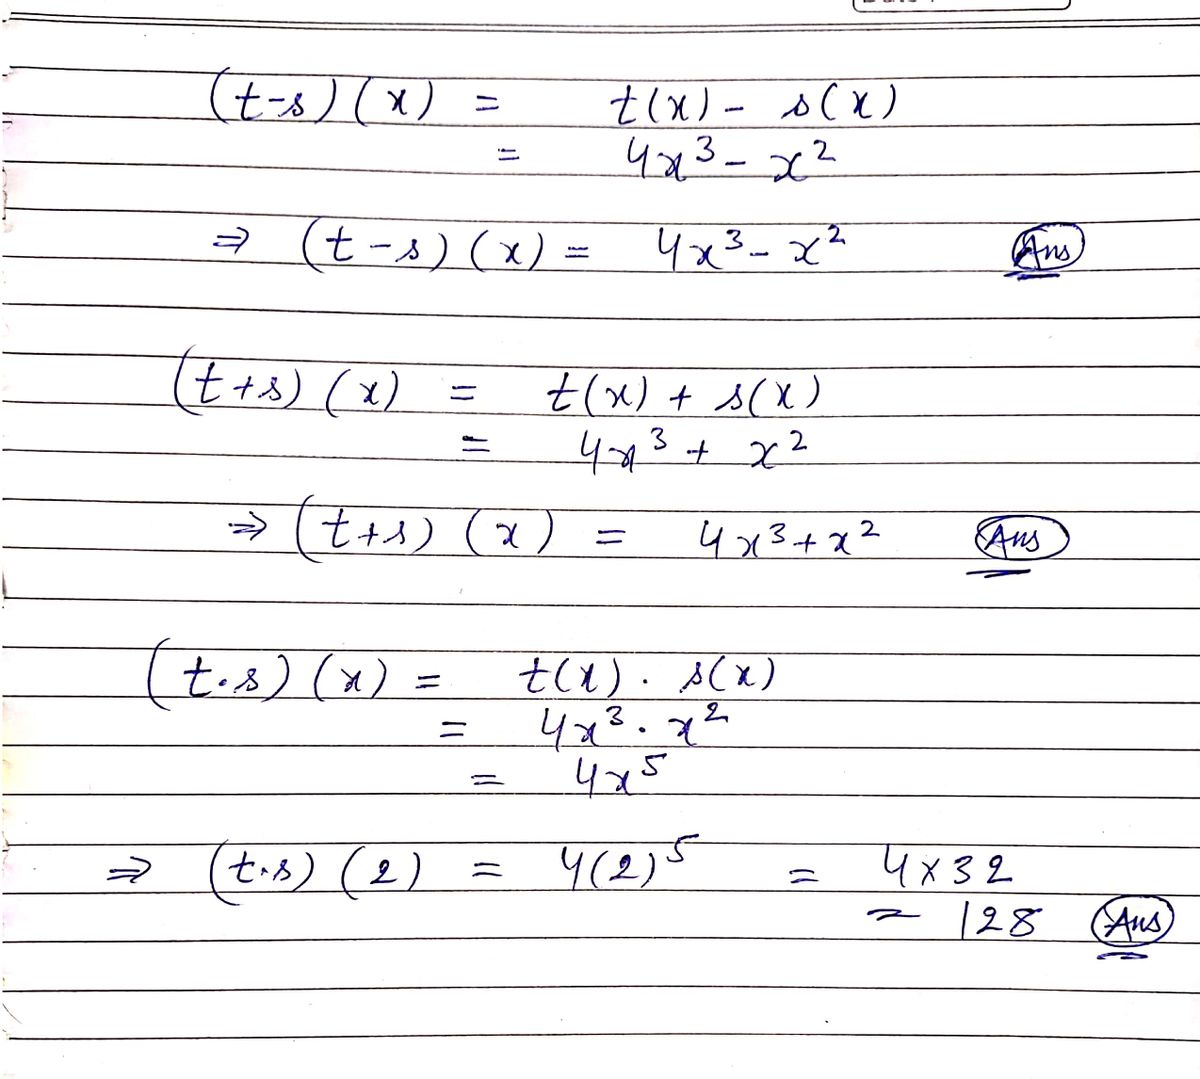 (t-s)(x) = t(x) - s(x)
= 4x³ - x²
⇒ (t-s)(x) = 4x³ - x² Ans
(t+s)(x) = t(x) + s(x)
= 4x³ + x²
⇒ (t+s)(x) = 4x³+x² Ans
(t·s)(x) = t(x) · s(x)
= 4x³ · x²
= 4x⁵
⇒ (t·s)(2) = 4(2)⁵ = 4×32
= 128 Ans